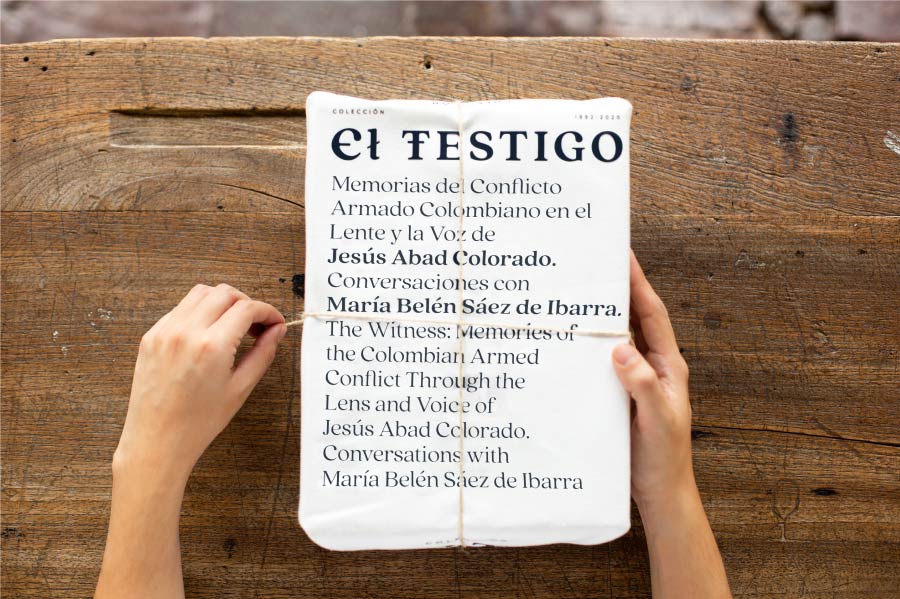 COLECCIÓN
1992-2020
El TESTIGO
Memorias del Conflicto
Armado Colombiano en el
Lente y la Voz de
Jesús Abad Colorado.
Conversaciones con
María Belén Sáez de Ibarra.
The Witness: Memories of
the Colombian Armed
Conflict Through the
Lens and Voice of
Jesús Abad Colorado.
Conversations with
María Belén Sáez de Ibarra